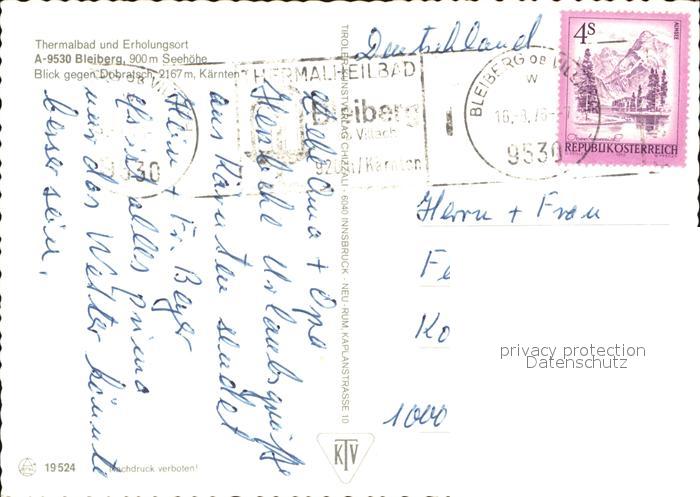 Thermalbad und Erholungsort
A-9530 Bleiberg, 900 m Seehöhe
Blick gegen Dobratsch, 2167 m, Kärnten
Deutschland
THERMALHEILBAD
Bleiberg
Villach
920m/Kärnten
9530
BLEIBERG OB VILLACH
W
9530
4S
ALMSEE
REPUBLIK ÖSTERREICH
Liebe Oma + Opa
Herzliche Urlaubsgrüße
aus Kärnten sendet
Hein + Fr. Beyer
es ist alles prima
nur das Wetter könnte
besser sein.
TIROLER KUNSTVERLAG CHIZZALI · 6040 INNSBRUCK - NEU-RUM, KAPLANSTRASSE 10
Herrn + Frau
Fe
Ko
1000
privacy protection
Datenschutz
KTV
19524
Nachdruck verboten!